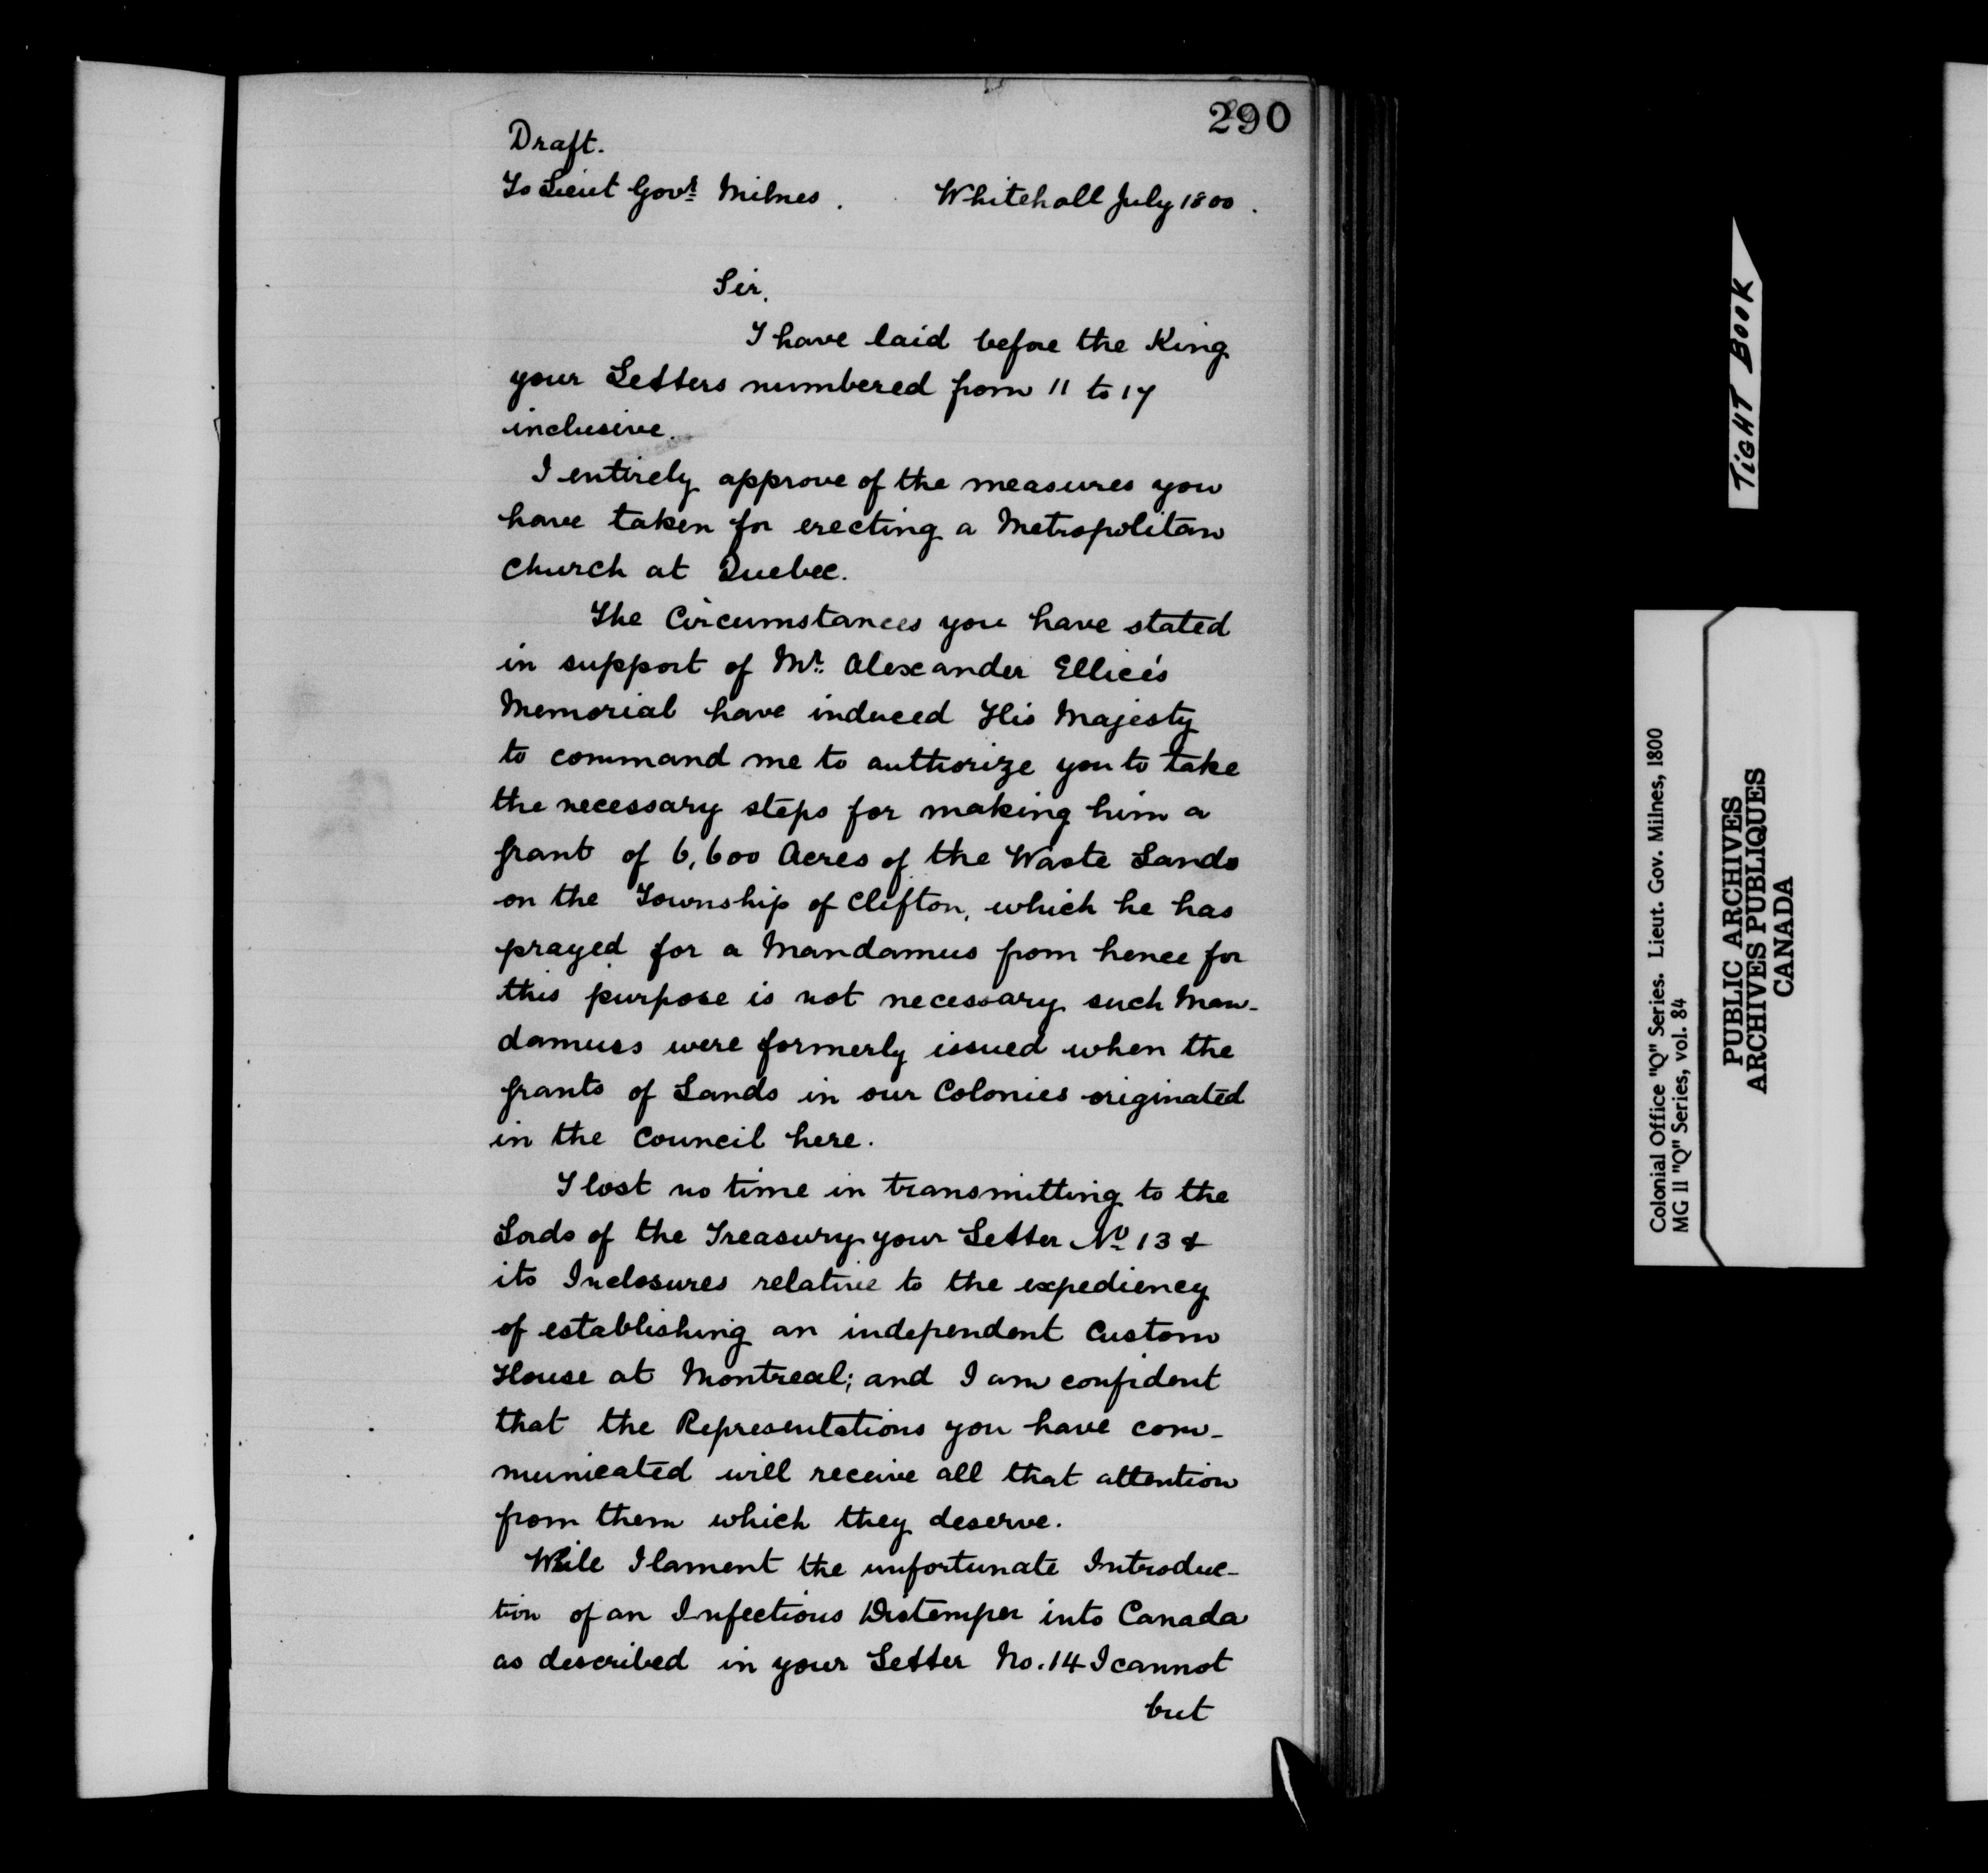 290
Draft.
To Lieut Govr. Milnes. Whitehall July 1800.
Sir,
I have laid before the King
your Letters numbered from 11 to 17
inclusive.
I entirely approve of the measures you
have taken for erecting a Metropolitan
Church at Quebec.
The Circumstances you have stated
in support of Mr. Alexander Ellice's
Memorial have induced His Majesty
to command me to authorize you to take
the necessary steps for making him a
grant of 6,600 Acres of the Waste Lands
on the Township of Clifton, which he has
prayed for a Mandamus from hence for
this purpose is not necessary such Man-
damuses were formerly issued when the
grants of Lands in our Colonies originated
in the Council here.
I lost no time in transmitting to the
Lords of the Treasury your Letter No. 13 &
its Inclosures relative to the expediency
of establishing an independent Custom
House at Montreal; and I am confident
that the Representations you have com-
municated will receive all that attention
from them which they deserve.
While I lament the unfortunate Introduc-
tion of an Infectious Distemper into Canada
as described in your Letter No. 14 I cannot
but
TIGHT BOOK
Colonial Office "Q" Series. Lieut. Gov. Milnes, 1800
MG 11 "Q" Series, vol. 84
PUBLIC ARCHIVES
ARCHIVES PUBLIQUES
CANADA